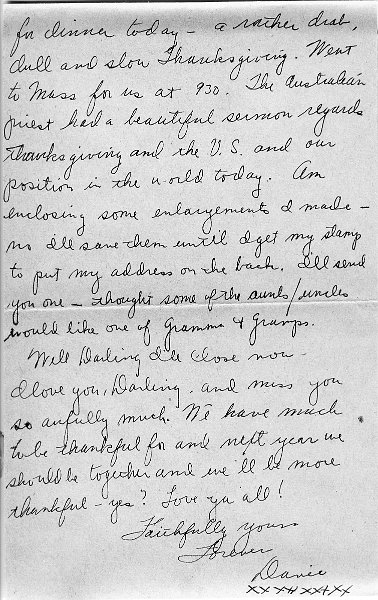 for dinner today - a rather drab,
dull and slow Thanksgiving. Went
to Mass for us at 930. The Australian
priest had a beautiful sermon regards
Thanksgiving and the U.S. and our
position in the world today. Am
enclosing some enlargements I made -
no I'll save them until I get my stamp
to put my address on the back. I'll send
you one - thought some of the aunts/uncles
would like one of Gramma & Gramps.
Well Darling I'll close now -
I love you, Darling, and miss you
so awfully much. We have much
to be thankful for and next year we
should be together and we'll be more
thankful - yes? Love ya all!
Faithfully yours
Forever
Davie
xxxxxxxx